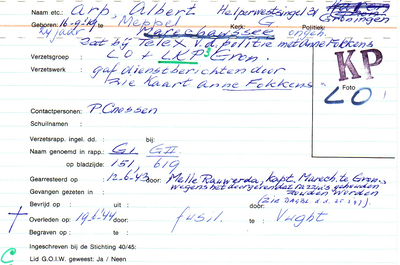 Naam etc.: Arp, Albert Helperwestsingel 31 Groningen
Geboren: 16-9-19 te: Meppel Kerk: G Politiek:
24 jaar Marechaussee ongeh.
Zat bij Telex v.d. politie met Anne Fokkens
Verzetsgroep : LO + LKP Gron.
Verzetswerk : gaf dienstberichten door
zie Kaart Anne Fokkens
KP
Foto
LO
Contactpersonen: P. Cnossen
Schuilnaam :
Verzetsrapp. ingel. dd. : bij:
Naam genoemd in rapp.: GI GII
op bladzijde: 151, 619
Gearresteerd op : 12-6-'43 door: Melle Rauwerda, Kapt. Marech. te Gron.
Gevangen gezeten in : wegens het doorgeven dat razzia's gehouden zouden worden
Bevrijd op : uit : door :
Overleden op : 19-6-'44 door : fusil. te : Vught
Begraven op : te :
Ingeschreven bij de Stichting 40/45:
C Lid G.O.I.W. geweest: Ja / Neen